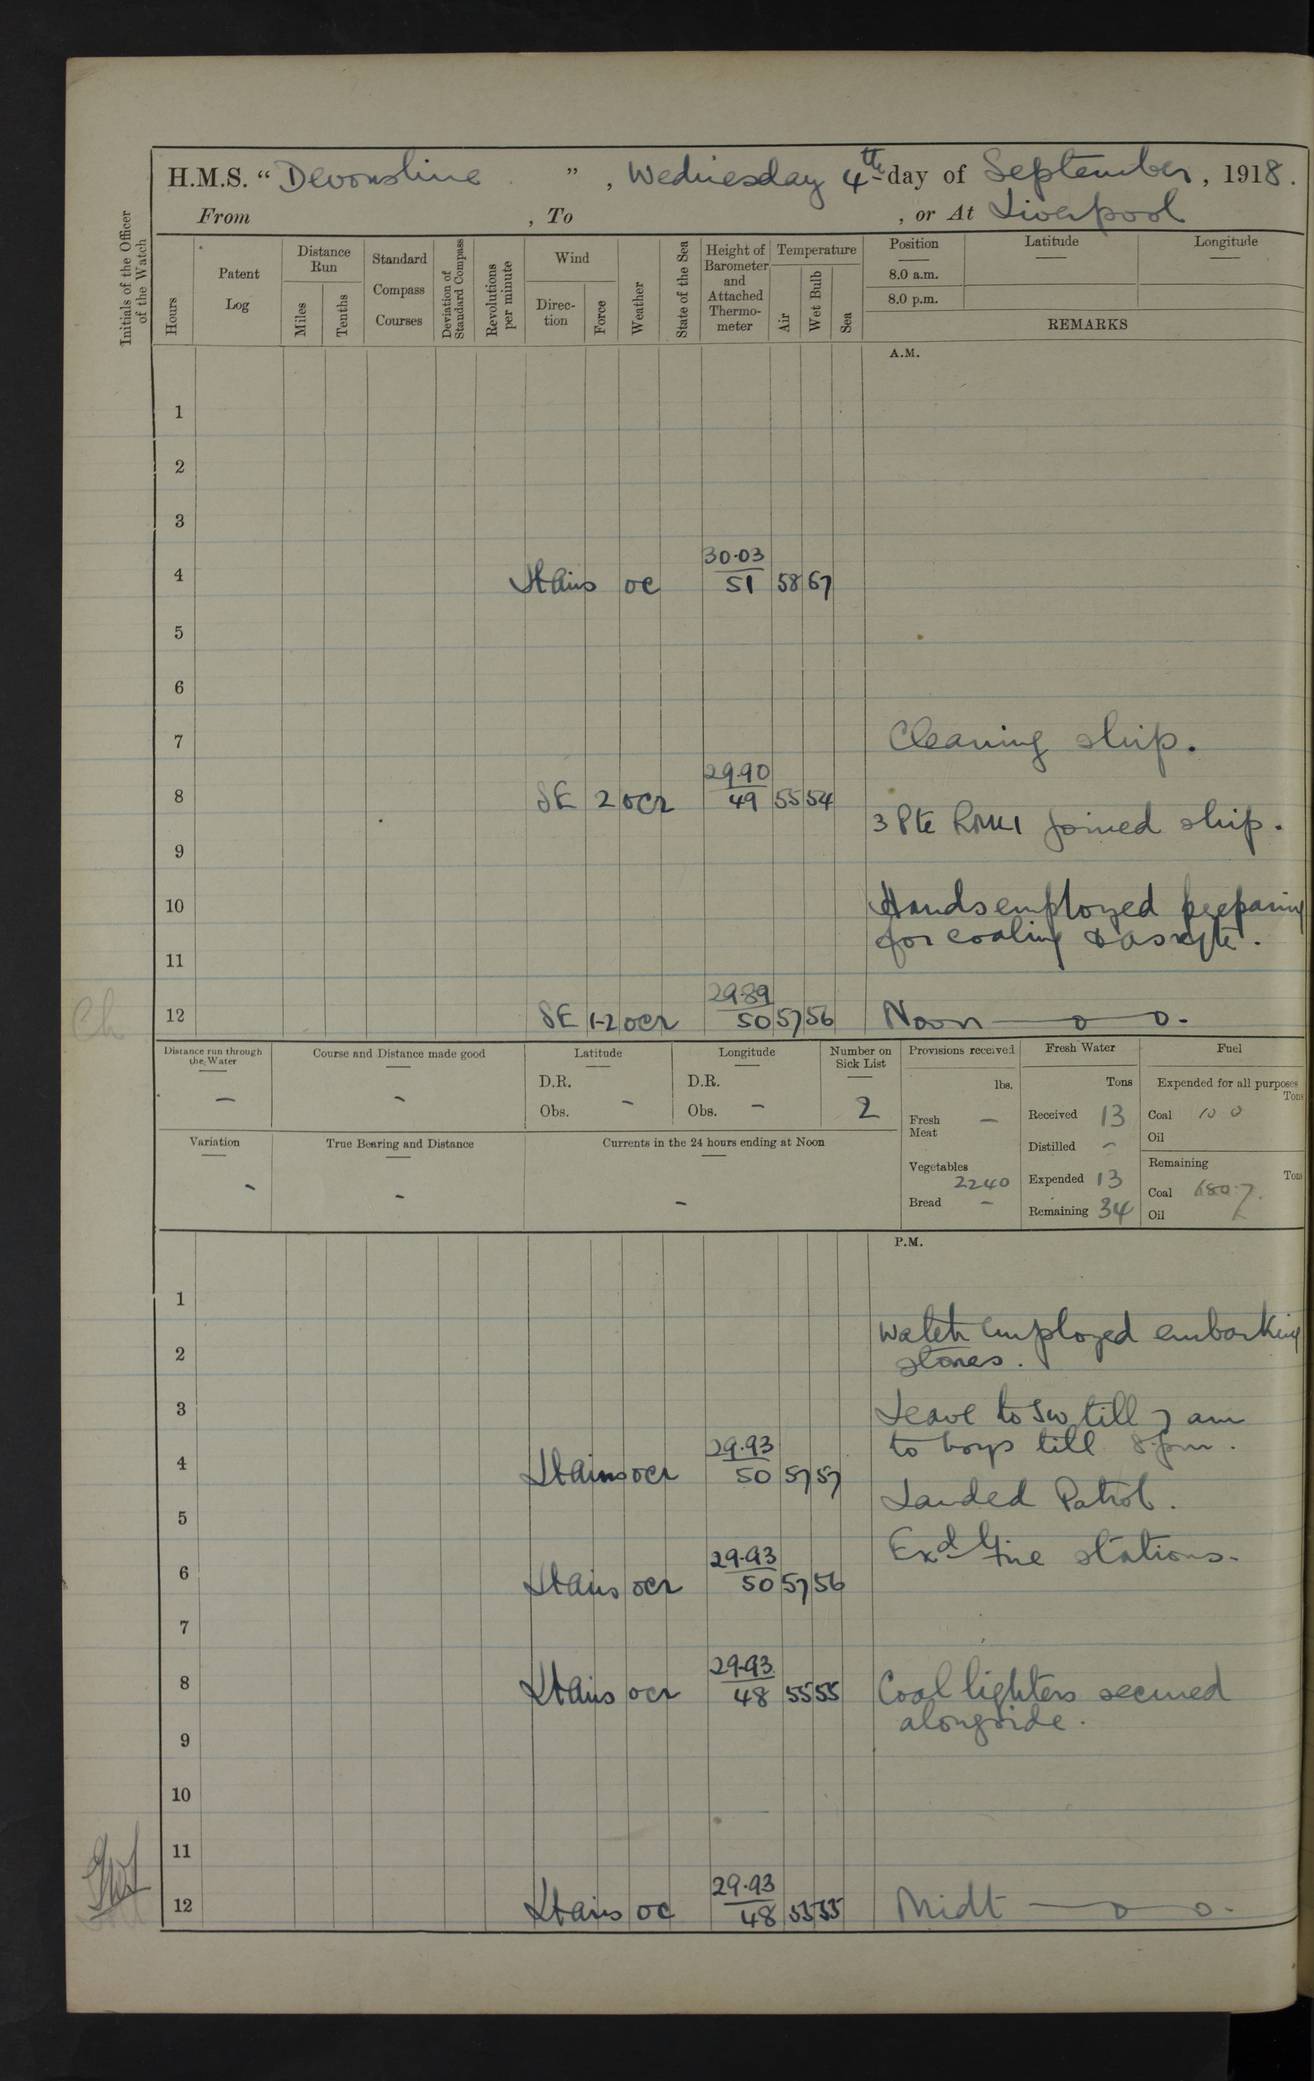 H.M.S. “ Devonshire ” , Wednesday 4th day of September, 1918.
From , To , or At Liverpool
Initials of the Officer of the Watch
Hours
Patent Log
Distance Run
Miles
Tenths
Standard Compass Courses
Deviation of Standard Compass
Revolutions per minute
Wind
Direc-tion
Force
Weather
State of the Sea
Height of Barometer and Attached Thermo-meter
Temperature
Air
Wet Bulb
Sea
Position Latitude Longitude
8.0 a.m.
8.0 p.m.
REMARKS
A.M.
1
2
3
4 Ltairs oc 30.03 51 58 67
5
6
7 Cleaning ship.
8 SE 2 ocr 29.90 49 55 54
3 Pte RMLI joined ship.
9
10 Hands employed preparing
for coaling & as reqte.
11
12 SE 1-2 ocr 29.89 50 57 56 Noon — o — o.
Distance run through the Water
–
Course and Distance made good
–
Latitude
D.R.
Obs. –
Longitude
D.R.
Obs. –
Number on Sick List
2
Provisions received
lbs.
Fresh Meat –
Vegetables 2240
Bread –
Fresh Water
Tons
Received 13
Distilled –
Expended 13
Remaining 34
Fuel
Expended for all purposes
Tons
Coal 10 0
Oil
Remaining
Tons
Coal
Oil
Variation
–
True Bearing and Distance
–
Currents in the 24 hours ending at Noon
–
P.M.
1
Watch employed embarking
2 stores.
3 Leave to SW till 7 am
to boys till 8 pm.
4 Ltairs ocr 29.93 50 57 57
Landed Patrol.
5
Exd Fire stations.
6 Ltairs ocr 29.93 50 57 56
7
8 Ltairs ocr 29.93 48 55 55 Coal lighters secured
alongside.
9
10
11
12 Ltairs oc 29.93 48 55 55 Midt — o — o.